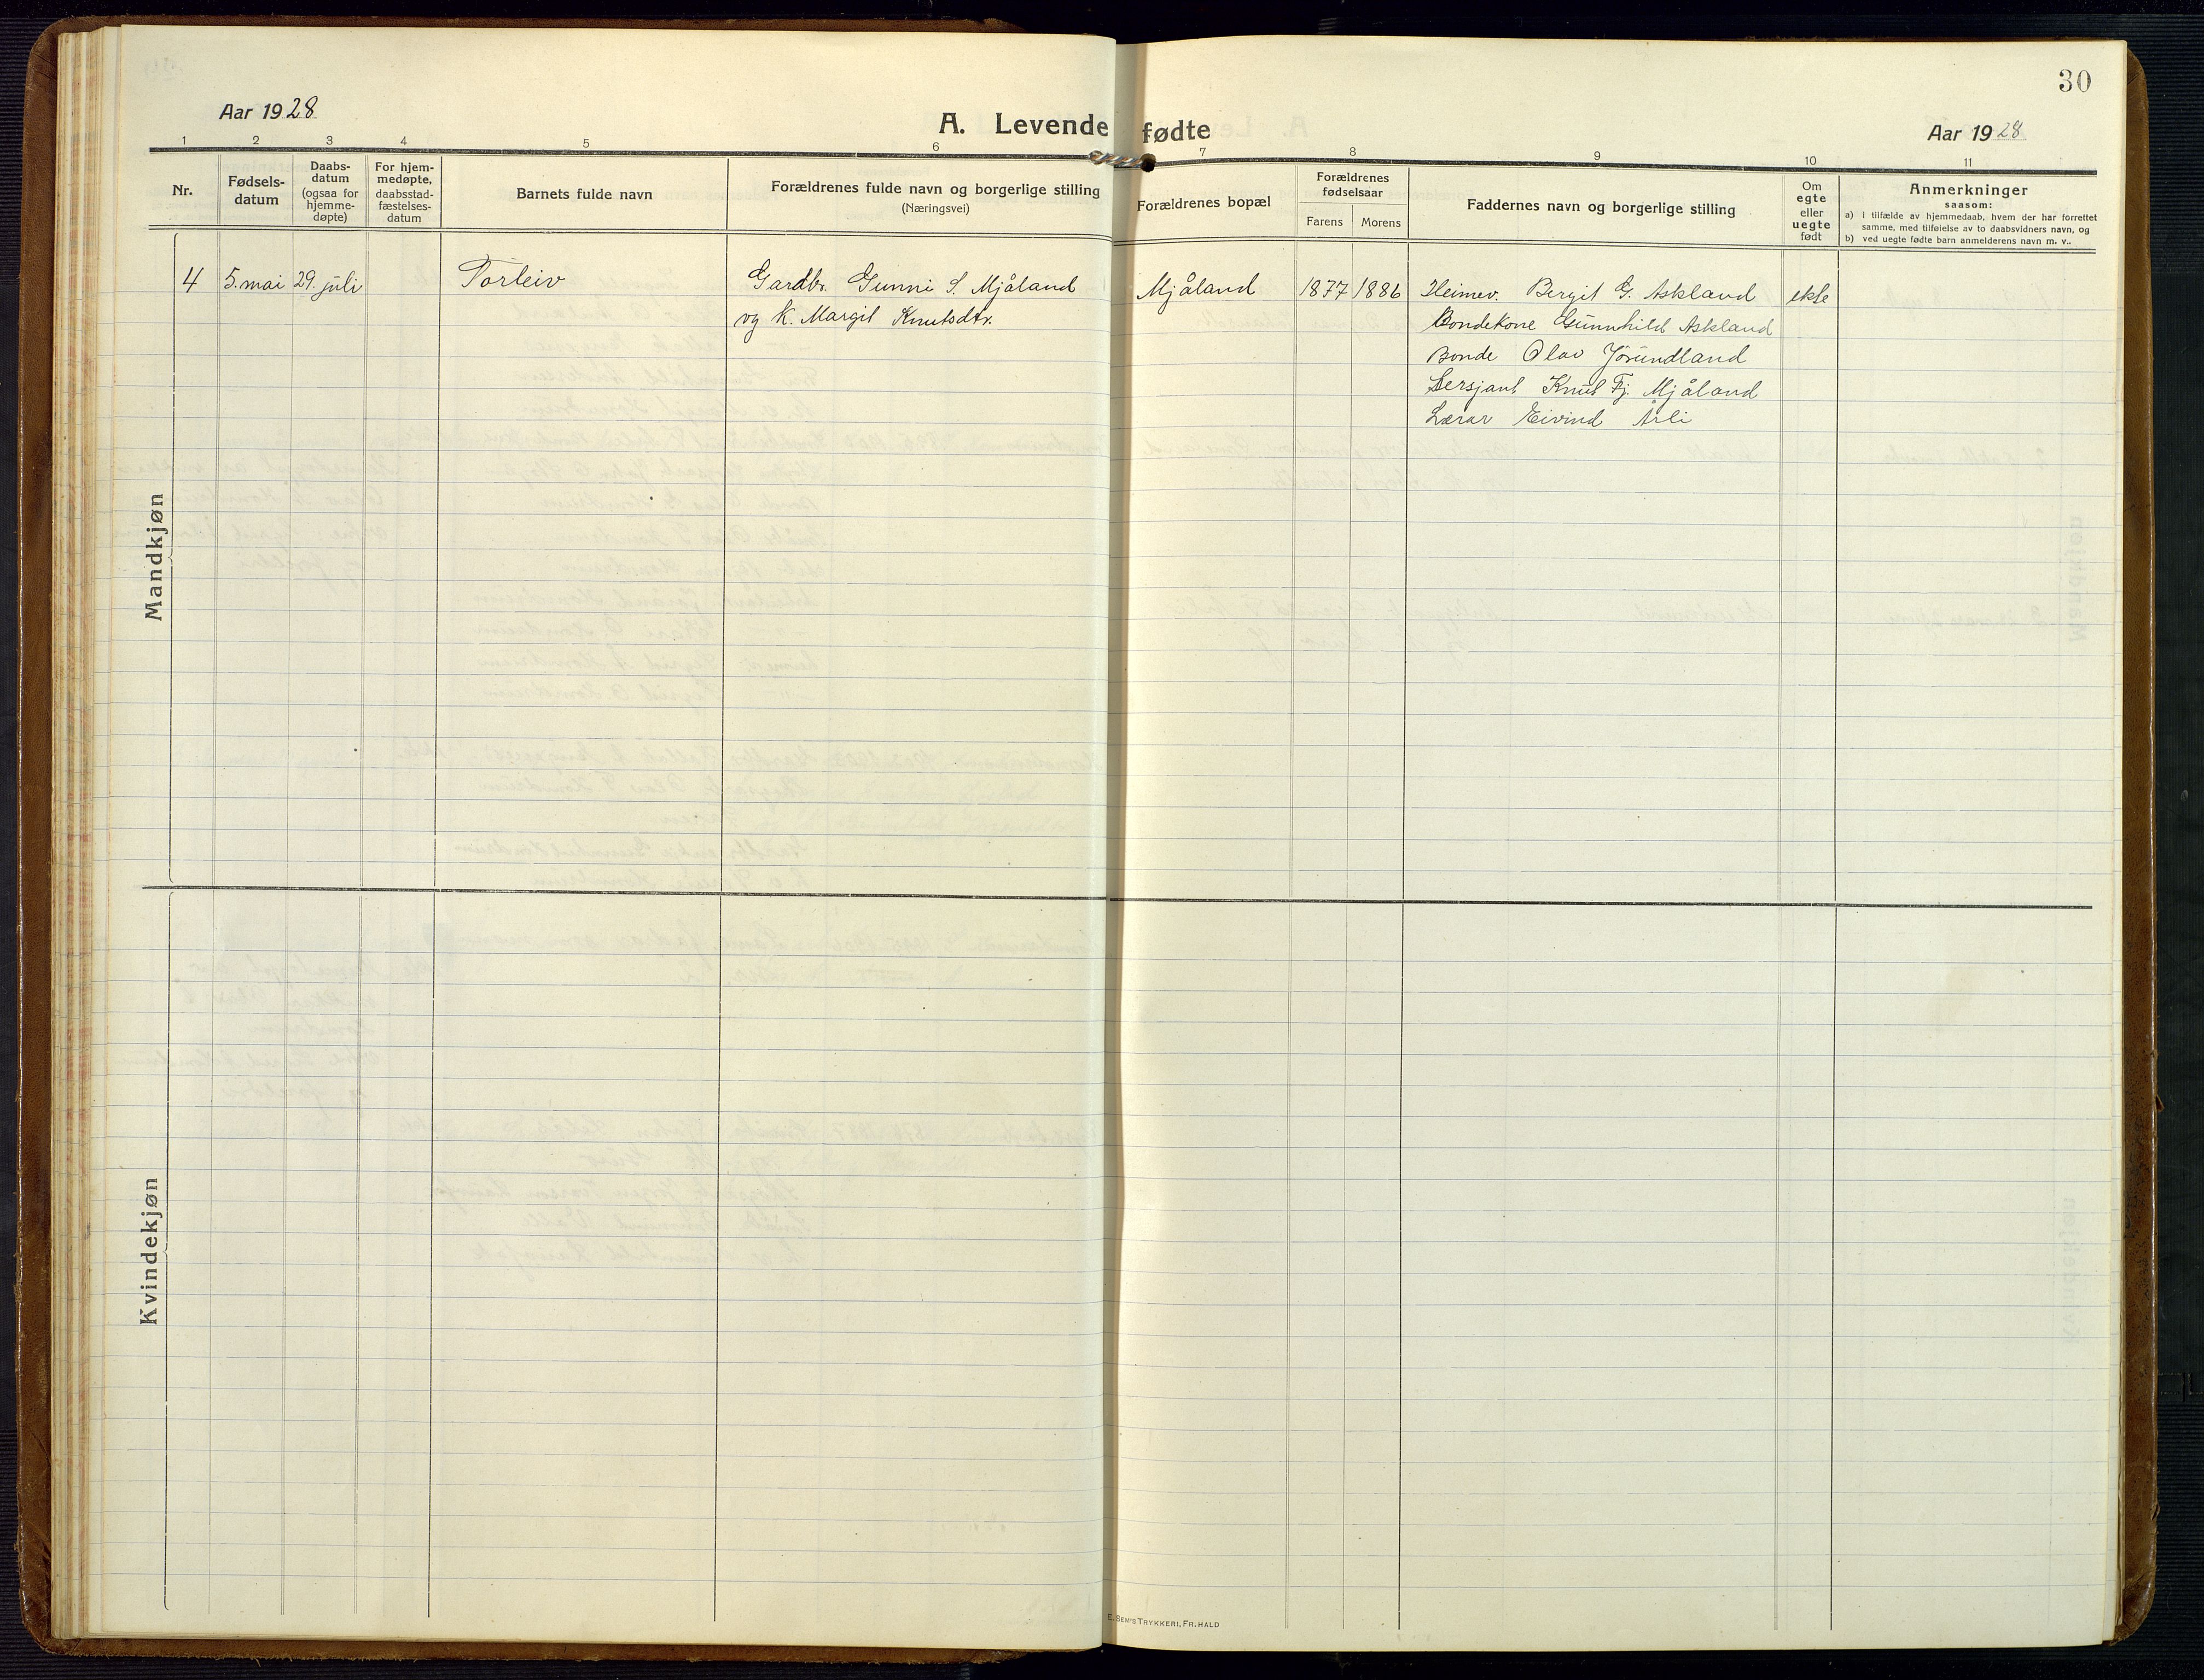 30
Aar 1928
A. Levende fødte
Aar 1928
1 2 3 4 5 6 7 8 9 10 11
Nr.
Fødsels-
datum
Daabs-
datum
(ogsaa for
hjemme-
døpte)
For hjem-
medøpte,
daabsstad-
fæstelses-
datum
Barnets fulde navn
Forældrenes fulde navn og borgerlige stilling
(Næringsvei)
Forældrenes bopæl
Forældrenes
fødselsaar
Farens Morens
Faddernes navn og borgerlige stilling
Om
egte
eller
uegte
født
Anmerkninger
saasom:
a) i tilfælde av hjemmedaab, hvem der har forrettet
samme, med tilføielse av to daabsvidners navn, og
b) ved uegte fødte barn anmelderens navn m. v..
Mandkjøn
4 5. mai 29. juli Torleiv Gardbr. Gunni S. Mjåland Mjåland 1877 1886 Heimev. Bergit G. Askland ekte
og K. Margit Knutsdtr. Bondekone Gunnhild Askland
Bonde Olav Jørundland
Sersjant Knut Fj. Mjåland
Lærar Eivind Årli
Kvindekjøn
E. Sem's Trykkeri, Fr. Hald